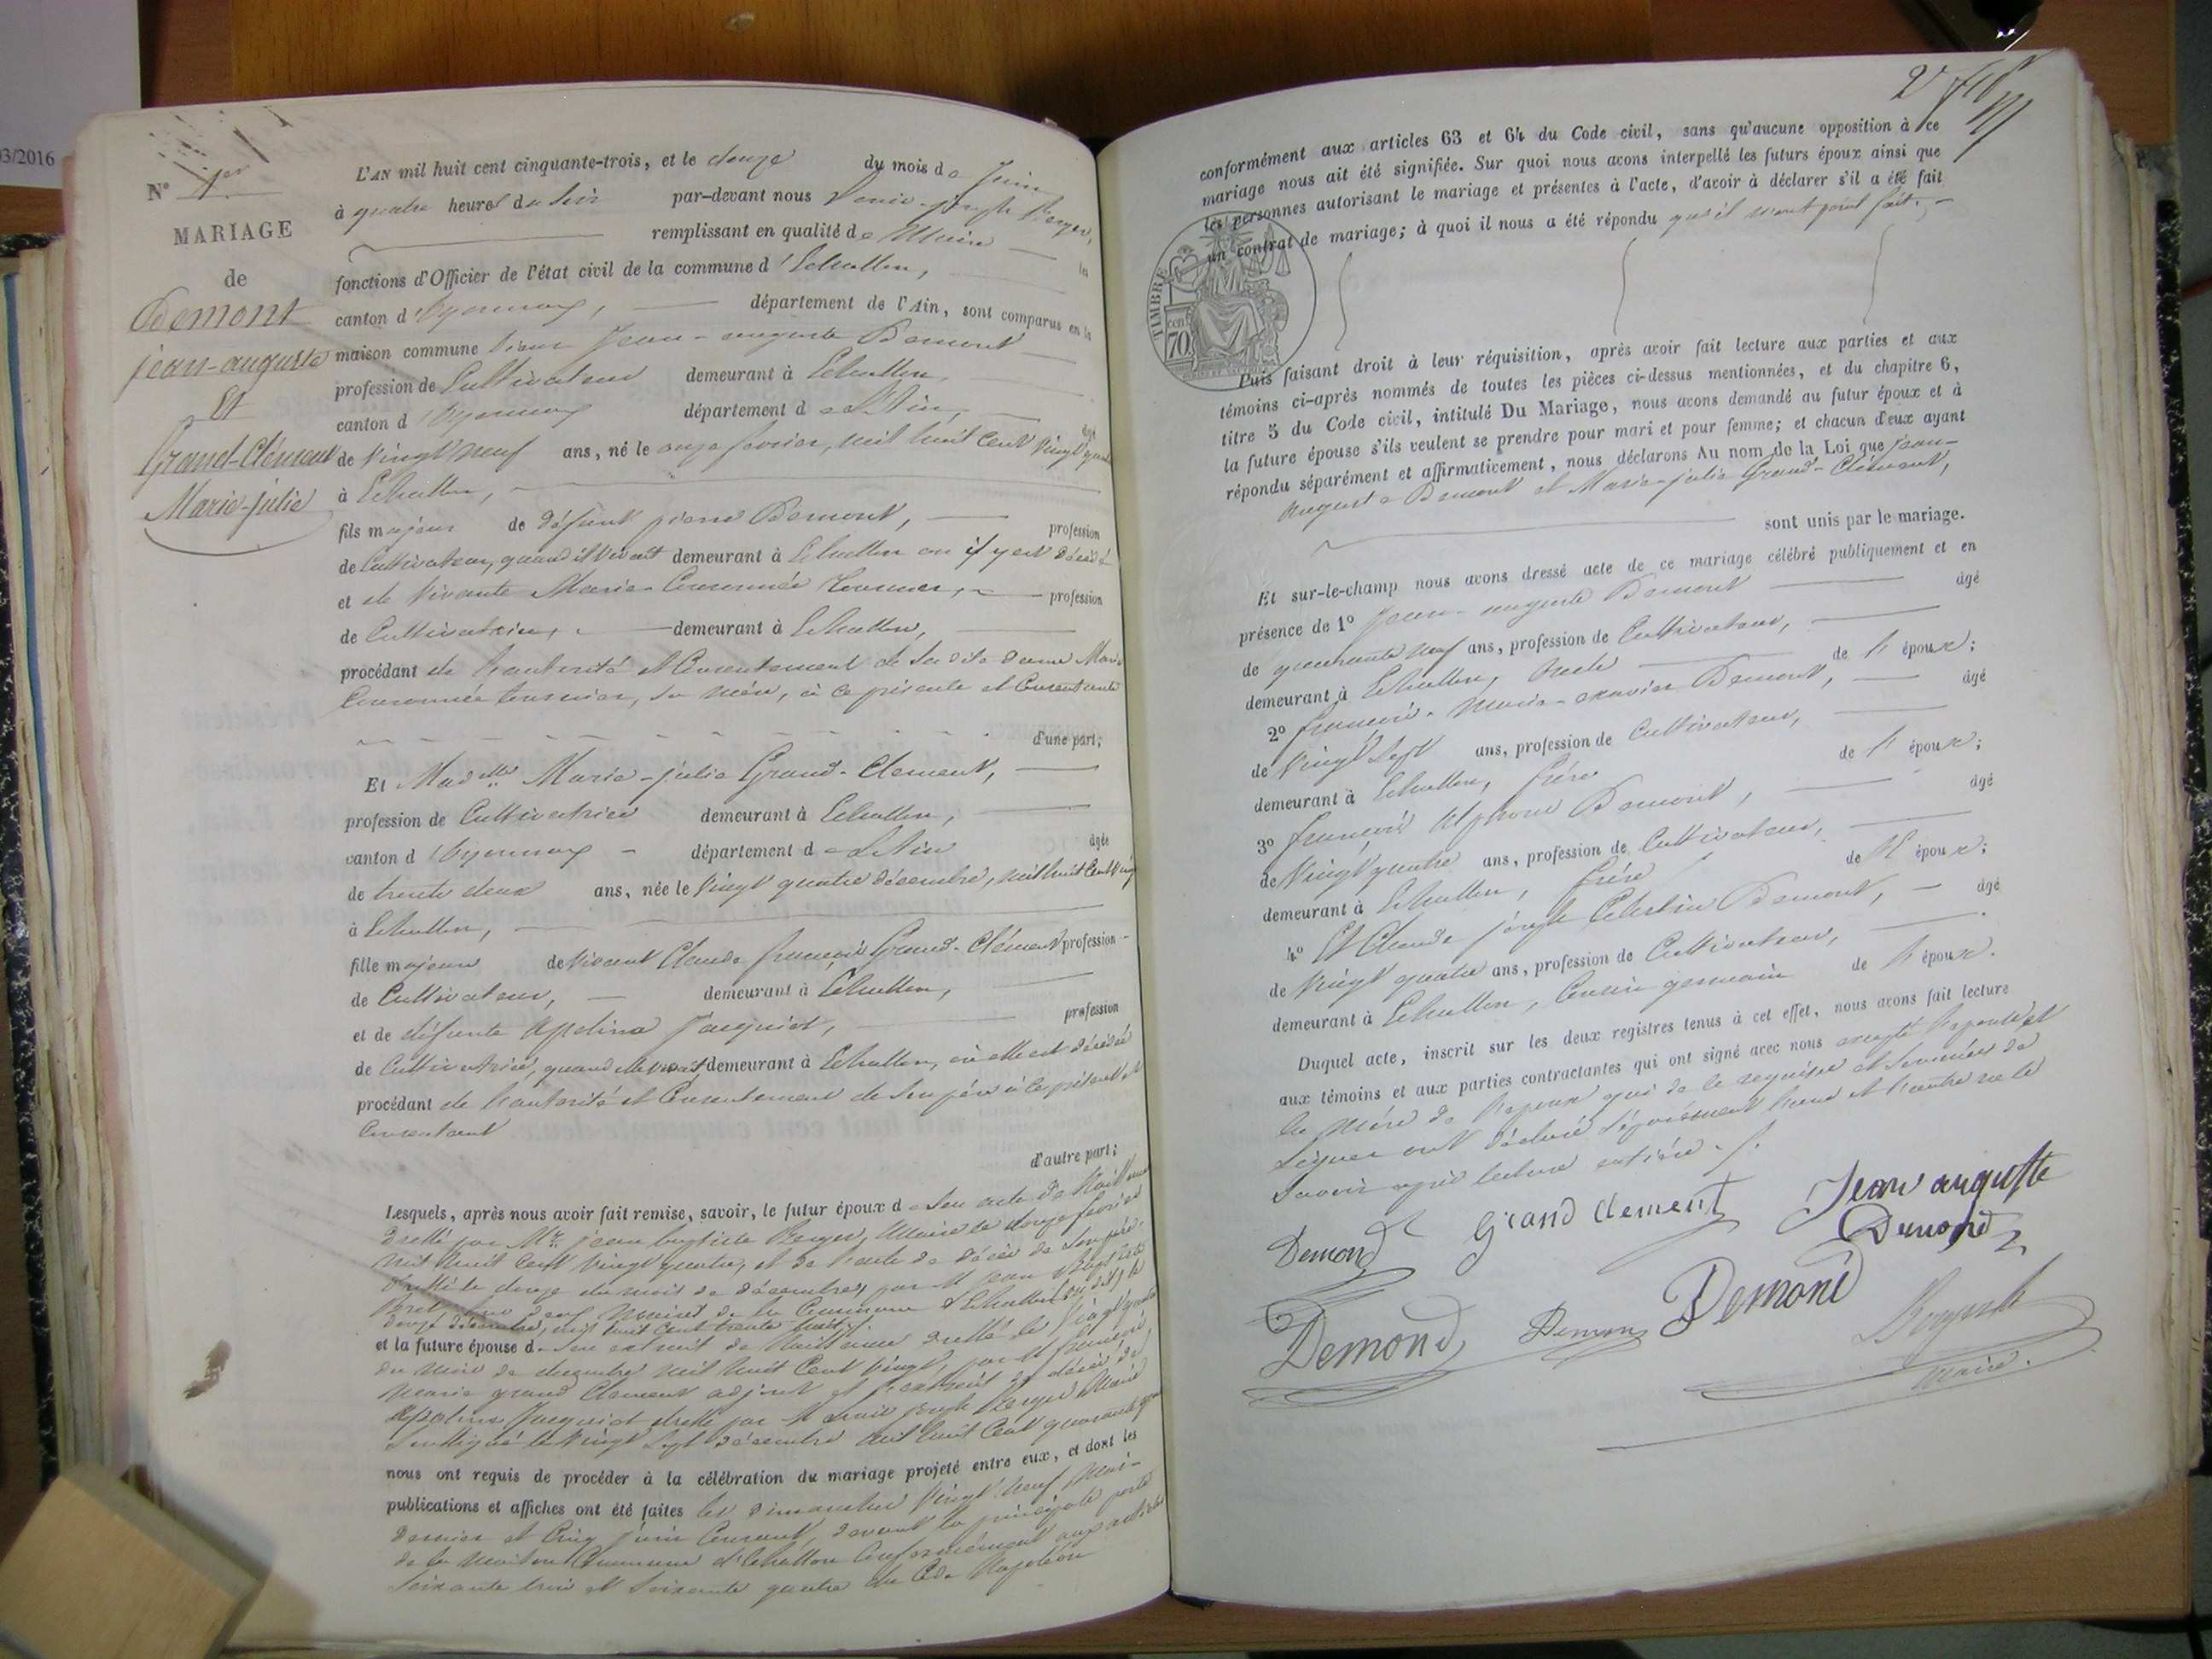 03/2016
N° 1er
MARIAGE
de
Demont
jean-auguste
Et
Grand-Clément
Marie-julie
L'AN mil huit cent cinquante-trois, et le douze du mois de Juin
à quatre heures du soir par-devant nous Louis-joseph Berger,
remplissant en qualité de Maire les
fonctions d'Officier de l'état civil de la commune d'Echallon,
canton d'Oyonnax, département de l'Ain, sont comparus en la
maison commune sieur Jean-auguste Demont
profession de Cultivateur demeurant à Echallon,
canton d'Oyonnax département de l'Ain, âgé
de vingt neuf ans, né le onze fevrier, mil huit cent vingt quatre
à Echallon,
fils majeur de défunt pierre Demont, profession
de Cultivateur, quand il vivait demeurant à Echallon ou il y est décédé
et de vivante Marie Couronnée Tournier, profession
de Cultivatrice, demeurant à Echallon,
procédant de l'autorité et Consentement de la dite dame Marie
Couronnée Tournier, sa mère, à ce présente et Consentante
d'une part;
Et Madelle Marie-julie Grand-Clement,
profession de Cultivatrice demeurant à Echallon,
canton d'Oyonnax département de l'Ain âgée
de trente deux ans, née le vingt quatre décembre, mil huit cent vingt
à Echallon,
fille majeure de vivant Claude françois Grand-Clément profession
de Cultivateur, demeurant à Echallon,
et de défunte Apoline Jacquiot, profession
de Cultivatrice, quand elle vivait demeurant à Echallon, où elle est décédée
procédant de l'autorité et Consentement de son père à ce présent et
Consentant
d'autre part;
Lesquels, après nous avoir fait remise, savoir, le futur époux de son acte de Naissance
dressé par Mr. jean baptiste Berger, Maire le douze fevrier
mil huit cent vingt quatre, et de l'acte de décès de son père,
dressé le douze du mois de décembre, par M jean
Maires de la Commune d'Echallon
douze décembre, mil huit cent trente
et la future épouse de son extrait de Naissance dressé le vingt quatre
du mois de decembre mil huit cent vingt, par M françois
Marie grand Clement adjoint et l'extrait de décès de
Apoline Jacquiot dressé par M Louis joseph Berger Maire
soussigné le vingt sept décembre mil huit cent quarante
nous ont requis de procéder à la célébration du mariage projeté entre eux, et dont les
publications et affiches ont été faites les dimanches vingt neuf Mai
dernier et Cinq juin Courant, devant la principale porte
de la maison Commune d'Echallon Conformément aux articles
soixante trois et soixante quatre du Code Napoléon
conformément aux articles 63 et 64 du Code civil, sans qu'aucune opposition à ce
mariage nous ait été signifiée. Sur quoi nous avons interpellé les futurs époux ainsi que
les personnes autorisant le mariage et présentes à l'acte, d'avoir à déclarer s'il a été fait
un contrat de mariage; à quoi il nous a été répondu qu'il n'en ont point fait.
TIMBRE
cent
70
Puis faisant droit à leur réquisition, après avoir fait lecture aux parties et aux
témoins ci-après nommés de toutes les pièces ci-dessus mentionnées, et du chapitre 6,
titre 5 du Code civil, intitulé Du Mariage, nous avons demandé au futur époux et à
la future épouse s'ils veulent se prendre pour mari et pour femme; et chacun d'eux ayant
répondu séparément et affirmativement, nous déclarons Au nom de la Loi que jean-
auguste Demont et Marie-julie Grand-Clément,
sont unis par le mariage.
Et sur-le-champ nous avons dressé acte de ce mariage célébré publiquement et en
présence de 1° Jean-auguste Demont âgé
de quarante neuf ans, profession de Cultivateur,
demeurant à Echallon, Oncle de l'époux;
2° françois-Marie-exavier Demont, âgé
de vingt sept ans, profession de Cultivateur,
demeurant à Echallon, frère de l'époux;
3° françois Alphonse Demont, âgé
de vingt quatre ans, profession de Cultivateur,
demeurant à Echallon, frère de l'époux;
4° Et Claude joseph Celestin Demont, âgé
de vingt quatre ans, profession de Cultivateur,
demeurant à Echallon, Cousin germain de l'époux.
Duquel acte, inscrit sur les deux registres tenus à cet effet, nous avons fait lecture
aux témoins et aux parties contractantes qui ont signé avec nous excepté l'épouse et
la mère de l'époux qui de le requise et sommées de
signer ont déclaré séparément l'une et l'autre ne le
savoir après lecture entière
Demond Grand Clement Jean auguste
Demond
Demond Demon Demond
Maire.